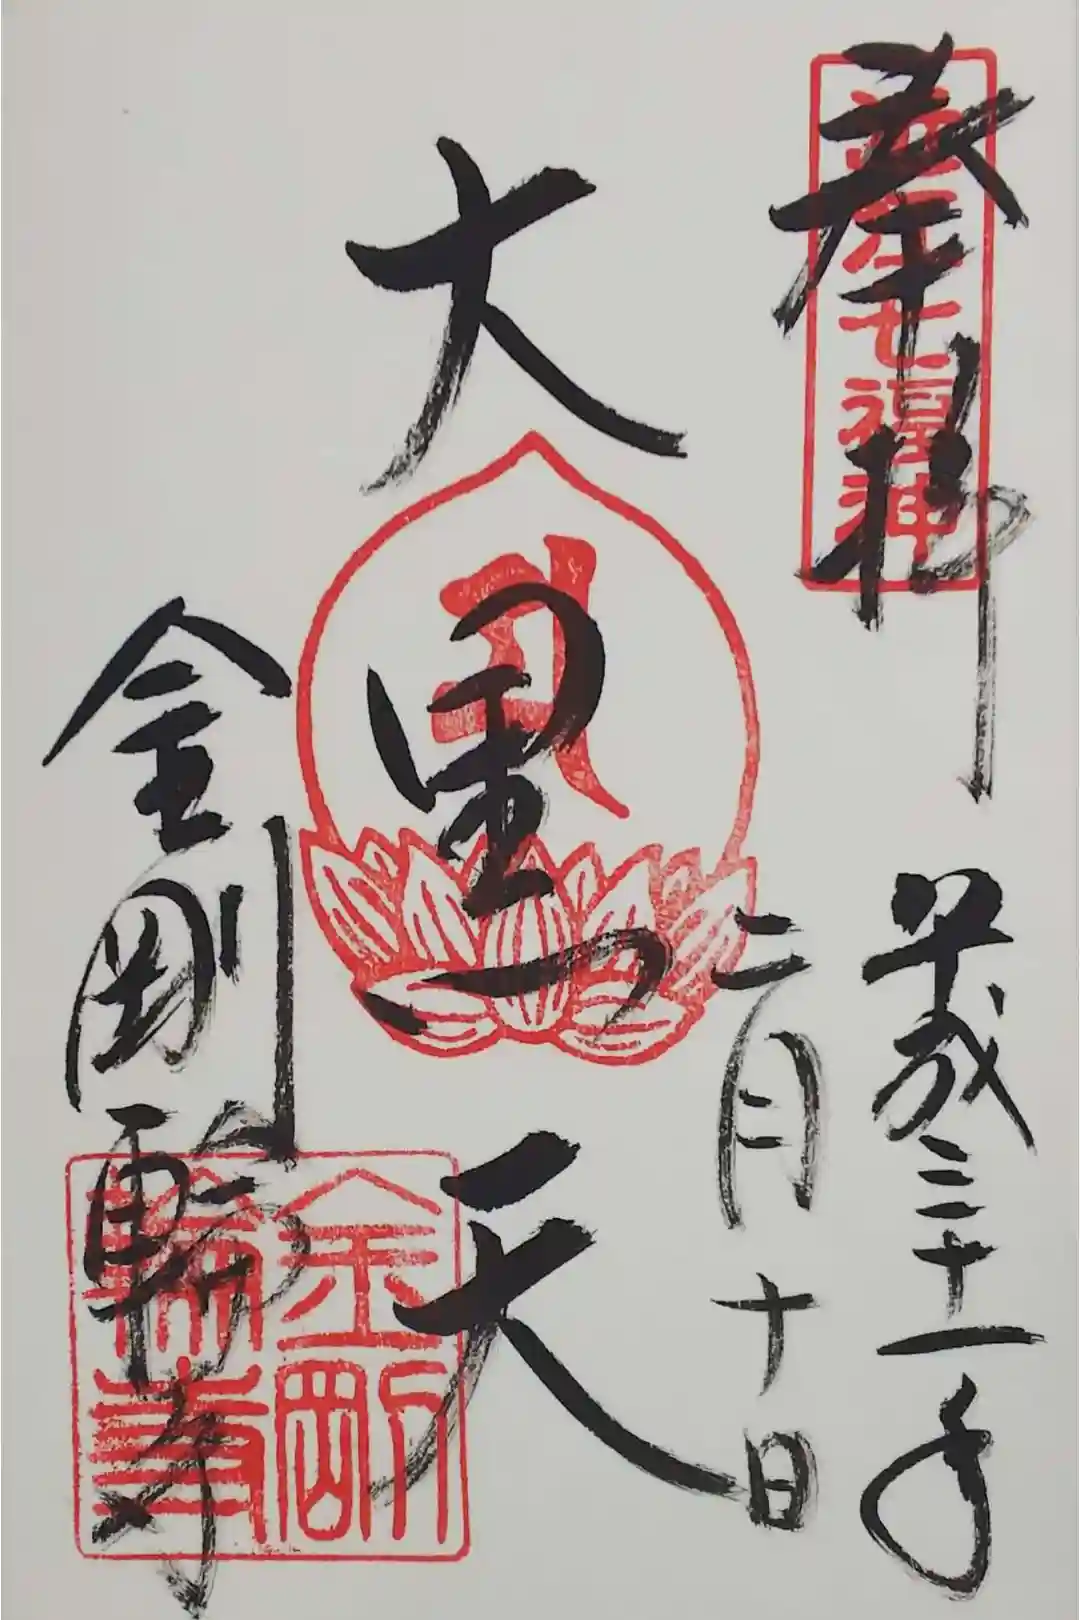 奉拝
近江七福神
平成三十一年
二月十日
大黒天
金剛輪寺
金剛
輪寺